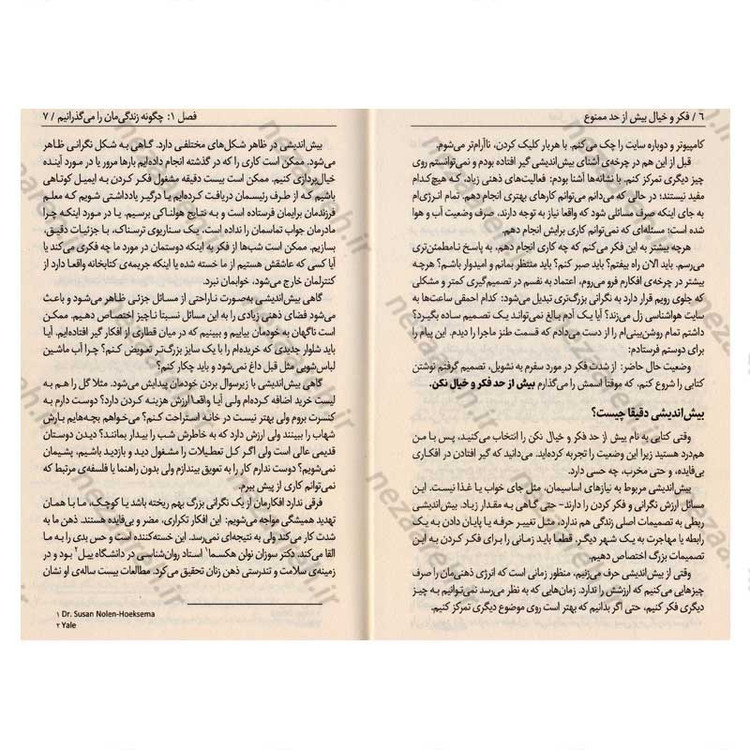 ۶ / فکر و خیال بیش از حد ممنوع
کامپیوتر و دوباره سایت را چک می‌کنم. با هربار کلیک کردن، ناآرام‌تر می‌شوم.
قبل از این هم در چرخه‌ی آشنای بیش‌اندیشی گیر افتاده بودم و نمی‌توانستم روی
چیز دیگری تمرکز کنم. با نشانه‌ها آشنا بودم: فعالیت‌های ذهنی زیاد، که هیچ‌کدام
مفید نیستند؛ در حالی که می‌دانم می‌توانم کارهای بهتری انجام دهم. تمام انرژی‌ام
به جای اینکه صرف مسائلی شود که واقعا نیاز به توجه دارند، صرف وضعیت آب و هوا
شده است؛ مسئله‌ای که نمی‌توانم کاری برایش انجام دهم.
هرچه بیشتر به این فکر می‌کنم که چه کاری انجام دهم، به پاسخ نامطمئن‌تری
می‌رسم. باید الان راه بیفتم؟ باید صبر کنم؟ باید منتظر بمانم و امیدوار باشم؟ هرچه
بیشتر در چرخه‌ی افکارم فرو می‌روم، اعتماد به نفسم در تصمیم‌گیری کمتر و مشکلی
که جلوی رویم قرار دارد به نگرانی بزرگ‌تری تبدیل می‌شود: کدام احمقی ساعت‌ها به
سایت هواشناسی زل می‌زند؟ آیا یک آدم بالغ نمی‌تواند یک تصمیم ساده بگیرد؟
داشتم تمام روشن‌بینی‌ام را از دست می‌دادم که قسمت طنز ماجرا را دیدم. این پیام را
برای دوستم فرستادم:
وضعیت حال حاضر: از شدت فکر در مورد سفرم به نشویل، تصمیم گرفتم نوشتن
کتابی را شروع کنم، که موقتا اسمش را می‌گذارم بیش از حد فکر و خیال نکن.
بیش‌اندیشی دقیقا چیست؟
وقتی کتابی به نام بیش از حد فکر و خیال نکن را انتخاب می‌کنید، پس با من
هم‌درد هستید زیرا این وضعیت را تجربه کرده‌اید. می‌دانید که گیر افتادن در افکاری
بی‌فایده، و حتی مخرب، چه حسی دارد.
بیش‌اندیشی مربوط به نیازهای اساسی‌مان، مثل جای خواب یا غذا نیست. این
مسائل ارزش نگرانی و فکر کردن را دارند– حتی گاهی به مقدار زیاد. بیش‌اندیشی
ربطی به تصمیمات اصلی زندگی هم ندارد، مثل تغییر حرفه یا پایان دادن به یک
رابطه یا مهاجرت به یک شهر دیگر. قطعا باید زمانی را برای فکر کردن به این
تصمیمات بزرگ اختصاص دهیم.
وقتی از بیش‌اندیشی حرف می‌زنیم، منظور زمانی است که انرژی ذهنی‌مان را صرف
چیزهایی می‌کنیم که ارزشش را ندارد. زمان‌هایی که به نظر می‌رسد نمی‌توانیم به چیز
دیگری فکر کنیم، حتی اگر بدانیم که بهتر است روی موضوع دیگری تمرکز کنیم.
فصل ۱: چگونه زندگی‌مان را می‌گذرانیم / ۷
بیش‌اندیشی در ظاهر شکل‌های مختلفی دارد. گاهی به شکل نگرانی ظاهر
می‌شود. ممکن است کاری را که در گذشته انجام داده‌ایم بارها مرور یا در مورد آینده
خیال‌پردازی کنیم. ممکن است بیست دقیقه مشغول فکر کردن به ایمیل کوتاهی
باشیم که از طرف رئیسمان دریافت کرده‌ایم یا درگیر یادداشتی شویم که معلم
فرزندمان برایمان فرستاده است و به نتایج هولناکی برسیم. یا در مورد اینکه چرا
مادرمان جواب تماسمان را نداده است، یک سناریوی ترسناک، با جزئیات دقیق،
بسازیم. ممکن است شب‌ها از فکر به اینکه دوستمان در مورد ما چه فکری می‌کند یا
آیا کسی که عاشقش هستیم از ما خسته شده یا اینکه جریمه‌ی کتابخانه واقعا دارد از
کنترلمان خارج می‌شود، خوابمان نبرد.
گاهی بیش‌اندیشی به‌صورت ناراحتی از مسائل جزئی ظاهر می‌شود و باعث
می‌شود فضای ذهنی زیادی را به این مسائل نسبتا ناچیز اختصاص دهیم. ممکن
است ناگهان به خودمان بیاییم و ببینیم که در میان قطاری از افکار گیر افتاده‌ایم. آیا
باید شلوار جدیدی که خریده‌ام را با یک سایز بزرگ‌تر تعویض کنم؟ چرا آب ماشین
لباس‌شویی مثل قبل داغ نمی‌شود و باید چکار کنم؟
گاهی بیش‌اندیشی با زیرسوال بردن خودمان پیدایش می‌شود. مثلا گل را هم به
لیست خرید اضافه کرده‌ام ولی آیا واقعا ارزش هزینه کردن دارد؟ دوست دارم به
کنسرت بروم ولی بهتر نیست در خانه استراحت کنم؟ می‌خواهم بچه‌هایم بارش
شهاب را ببینند ولی ارزش دارد که به خاطرش شب را بیدار بمانند؟ دیدن دوستان
قدیمی عالی است ولی اگر کل تعطیلات را مشغول دید و بازدید باشیم، پشیمان
نمی‌شویم؟ دوست ندارم کار را به تعویق بیندازم ولی بدون راهنما یا فلسفه‌ی مرتبط که
نمی‌توانم کاری از پیش ببرم.
فرقی ندارد افکارمان از یک نگرانی بزرگ بهم ریخته باشد یا کوچک، ما با همان
تهدید همیشگی مواجه می‌شویم: این افکار تکراری، مضر و بی‌فایده هستند. ذهن ما به
شدت کار می‌کند ولی به نتیجه‌ای نمی‌رسد. این خسته‌کننده است و حس بدی را به ما
القا می‌کند. دکتر سوزان نولن هکسما۱ استاد روان‌شناسی در دانشگاه ییل۲ بود و در
زمینه‌ی سلامت و تندرستی ذهن زنان تحقیق می‌کرد. مطالعات بیست ساله‌ی او نشان
۱ Dr. Susan Nolen-Hoeksema
۲ Yale
nezarah.ir